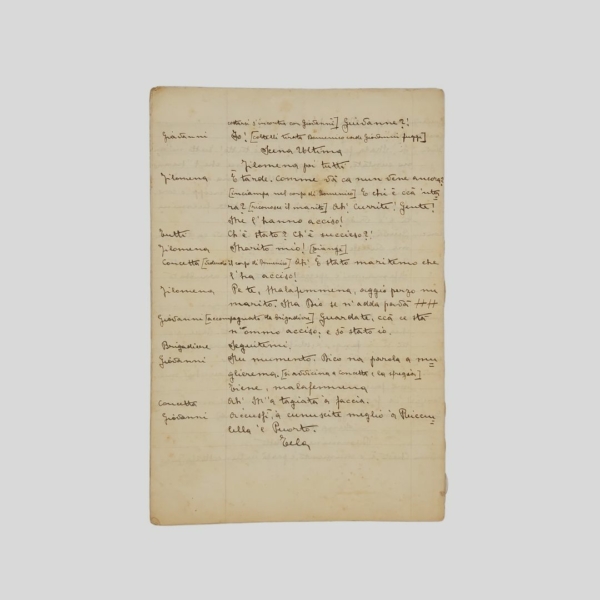 s'incontra con Giovanni] Giuvanne?!
Giovanni Io! [coltelli tirata Domenico cade Giovanni fugge]
Scena Ultima
Filomena poi tutti
Filomena È tarde, comme và ca nun vene ancora?
[inciampa nel corpo di Domenico] E chi è ccà 'nta
ra? [riconosce il marito] Ah! Currite! Gente!
Me l'hanno acciso!
Tutti Ch'è stato? Ch'è succieso?!
Filomena Marito mio! [piange]
Concetta [vedendo il corpo di Domenico] Ah! È stato maritemo che
l'ha acciso!
Filomena Pe te, malafemmena, aggio perzo mi
marito. Ma Dio se n'adda pavà
Giovanni [accompagnato da brigadiere] Guardate, ccà ce sta
n'ommo acciso, e sò stato io.
Brigadiere Seguitemi.
Giovanni Nu mumento. Dico na parola a mu
glierema, [si avvicina a Concetta e la sfregia]
Tiene, malafemmena
Concetta Ah! M'à tagiata 'a faccia.
Giovanni Accussì, à cunuscite meglio 'a Ricciu
lella 'e Puorto.
Tela